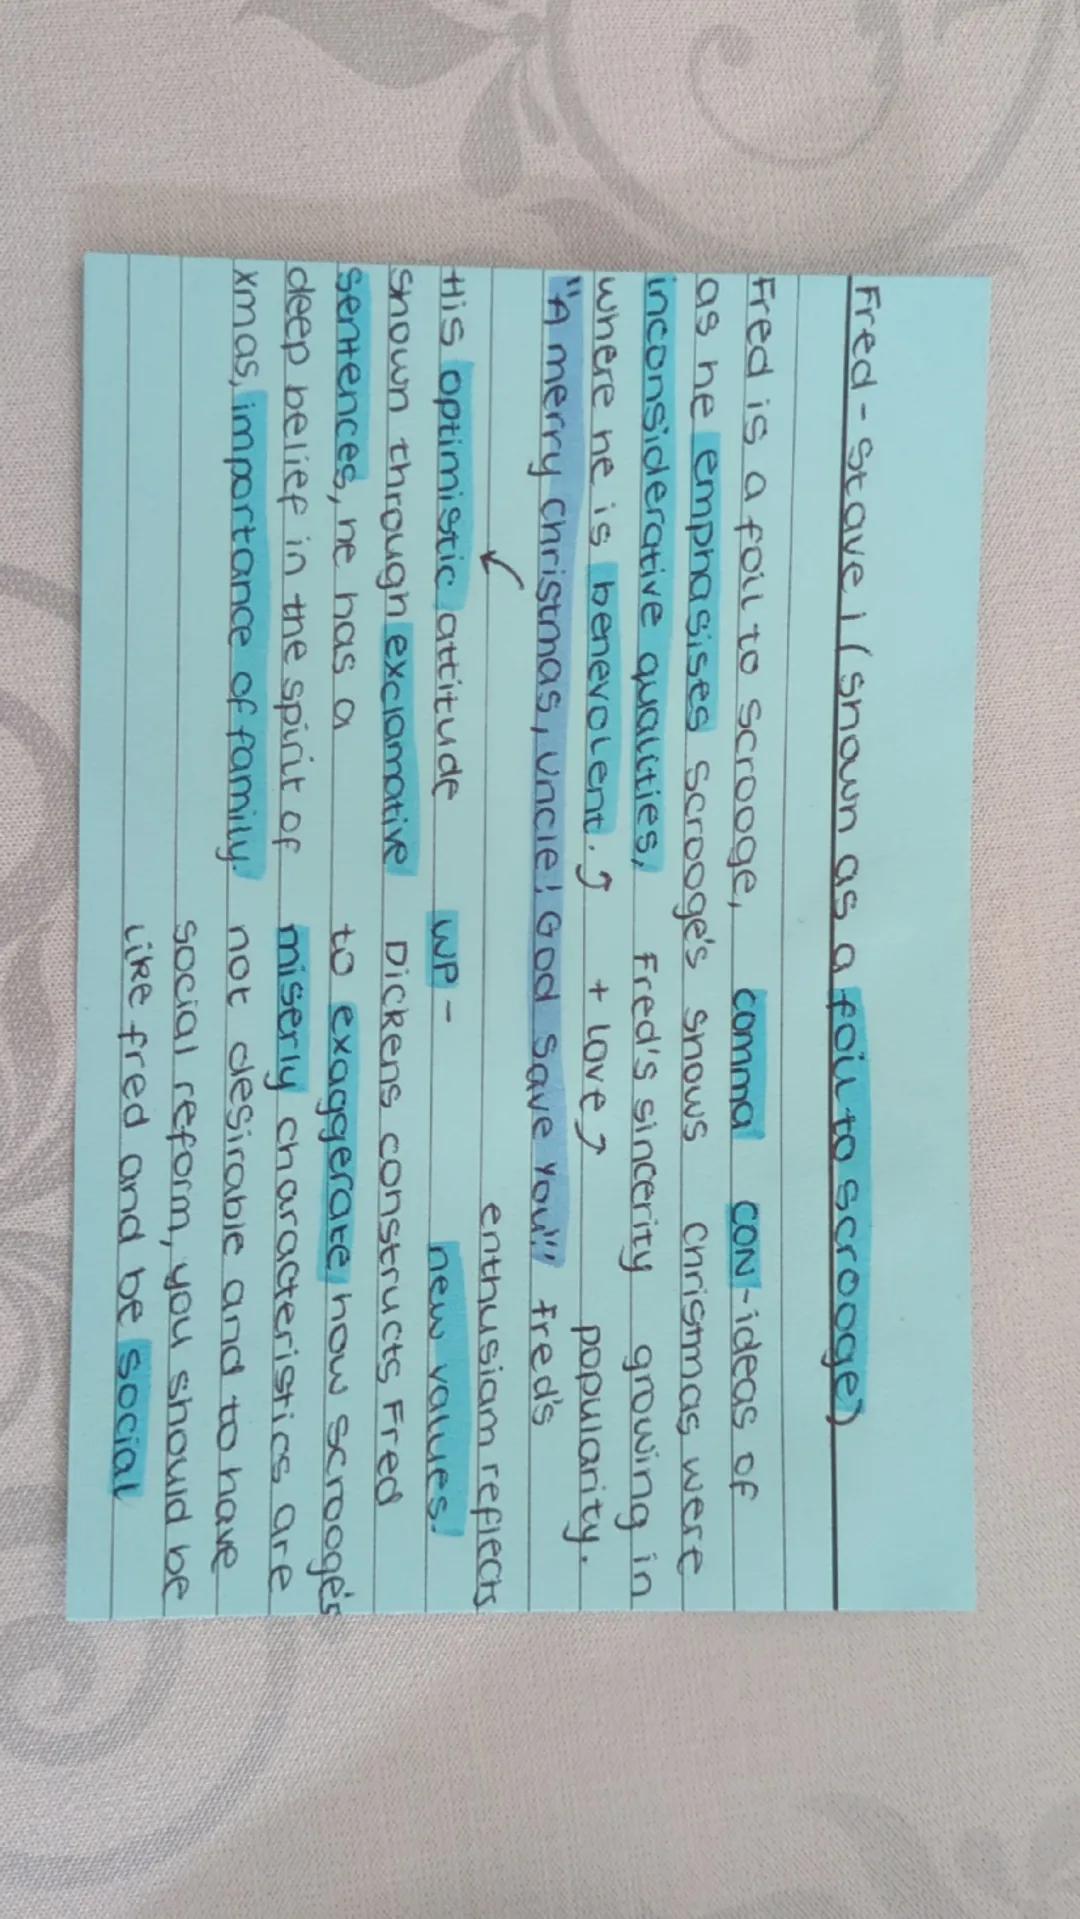 Fred - Stave 1 (shown as a foil to scrooge)
Fred is a foil to scrooge, comma CON-ideas of
as he emphasises Scrooge's shows christmas were
inconsiderative qualities, Fred's sincerity growing in
where he is benevolent. + love popularity.
"A merry christmas, uncle! God save you!" Fred's
enthusiam reflects
His optimistic attitude WP - new values.
shown through exclamative Dickens constructs Fred
sentences, he has a to exaggerate how scrooge's
deep belief in the spirit of miserly characteristics are
xmas, importance of family. not desirable and to have
social reform, you should be
like fred and be social